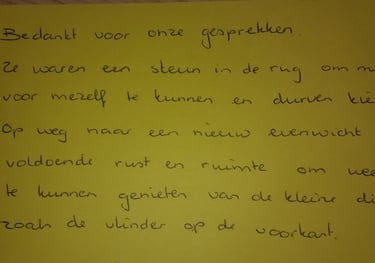 Bedankt voor onze gesprekken.
Ze waren een steun in de rug om m
voor mezelf te kunnen en durven kie
Op weg naar een nieuw evenwicht
voldoende rust en ruimte om wee
te kunnen genieten van de kleine di
zoals de vlinder op de voorkant.